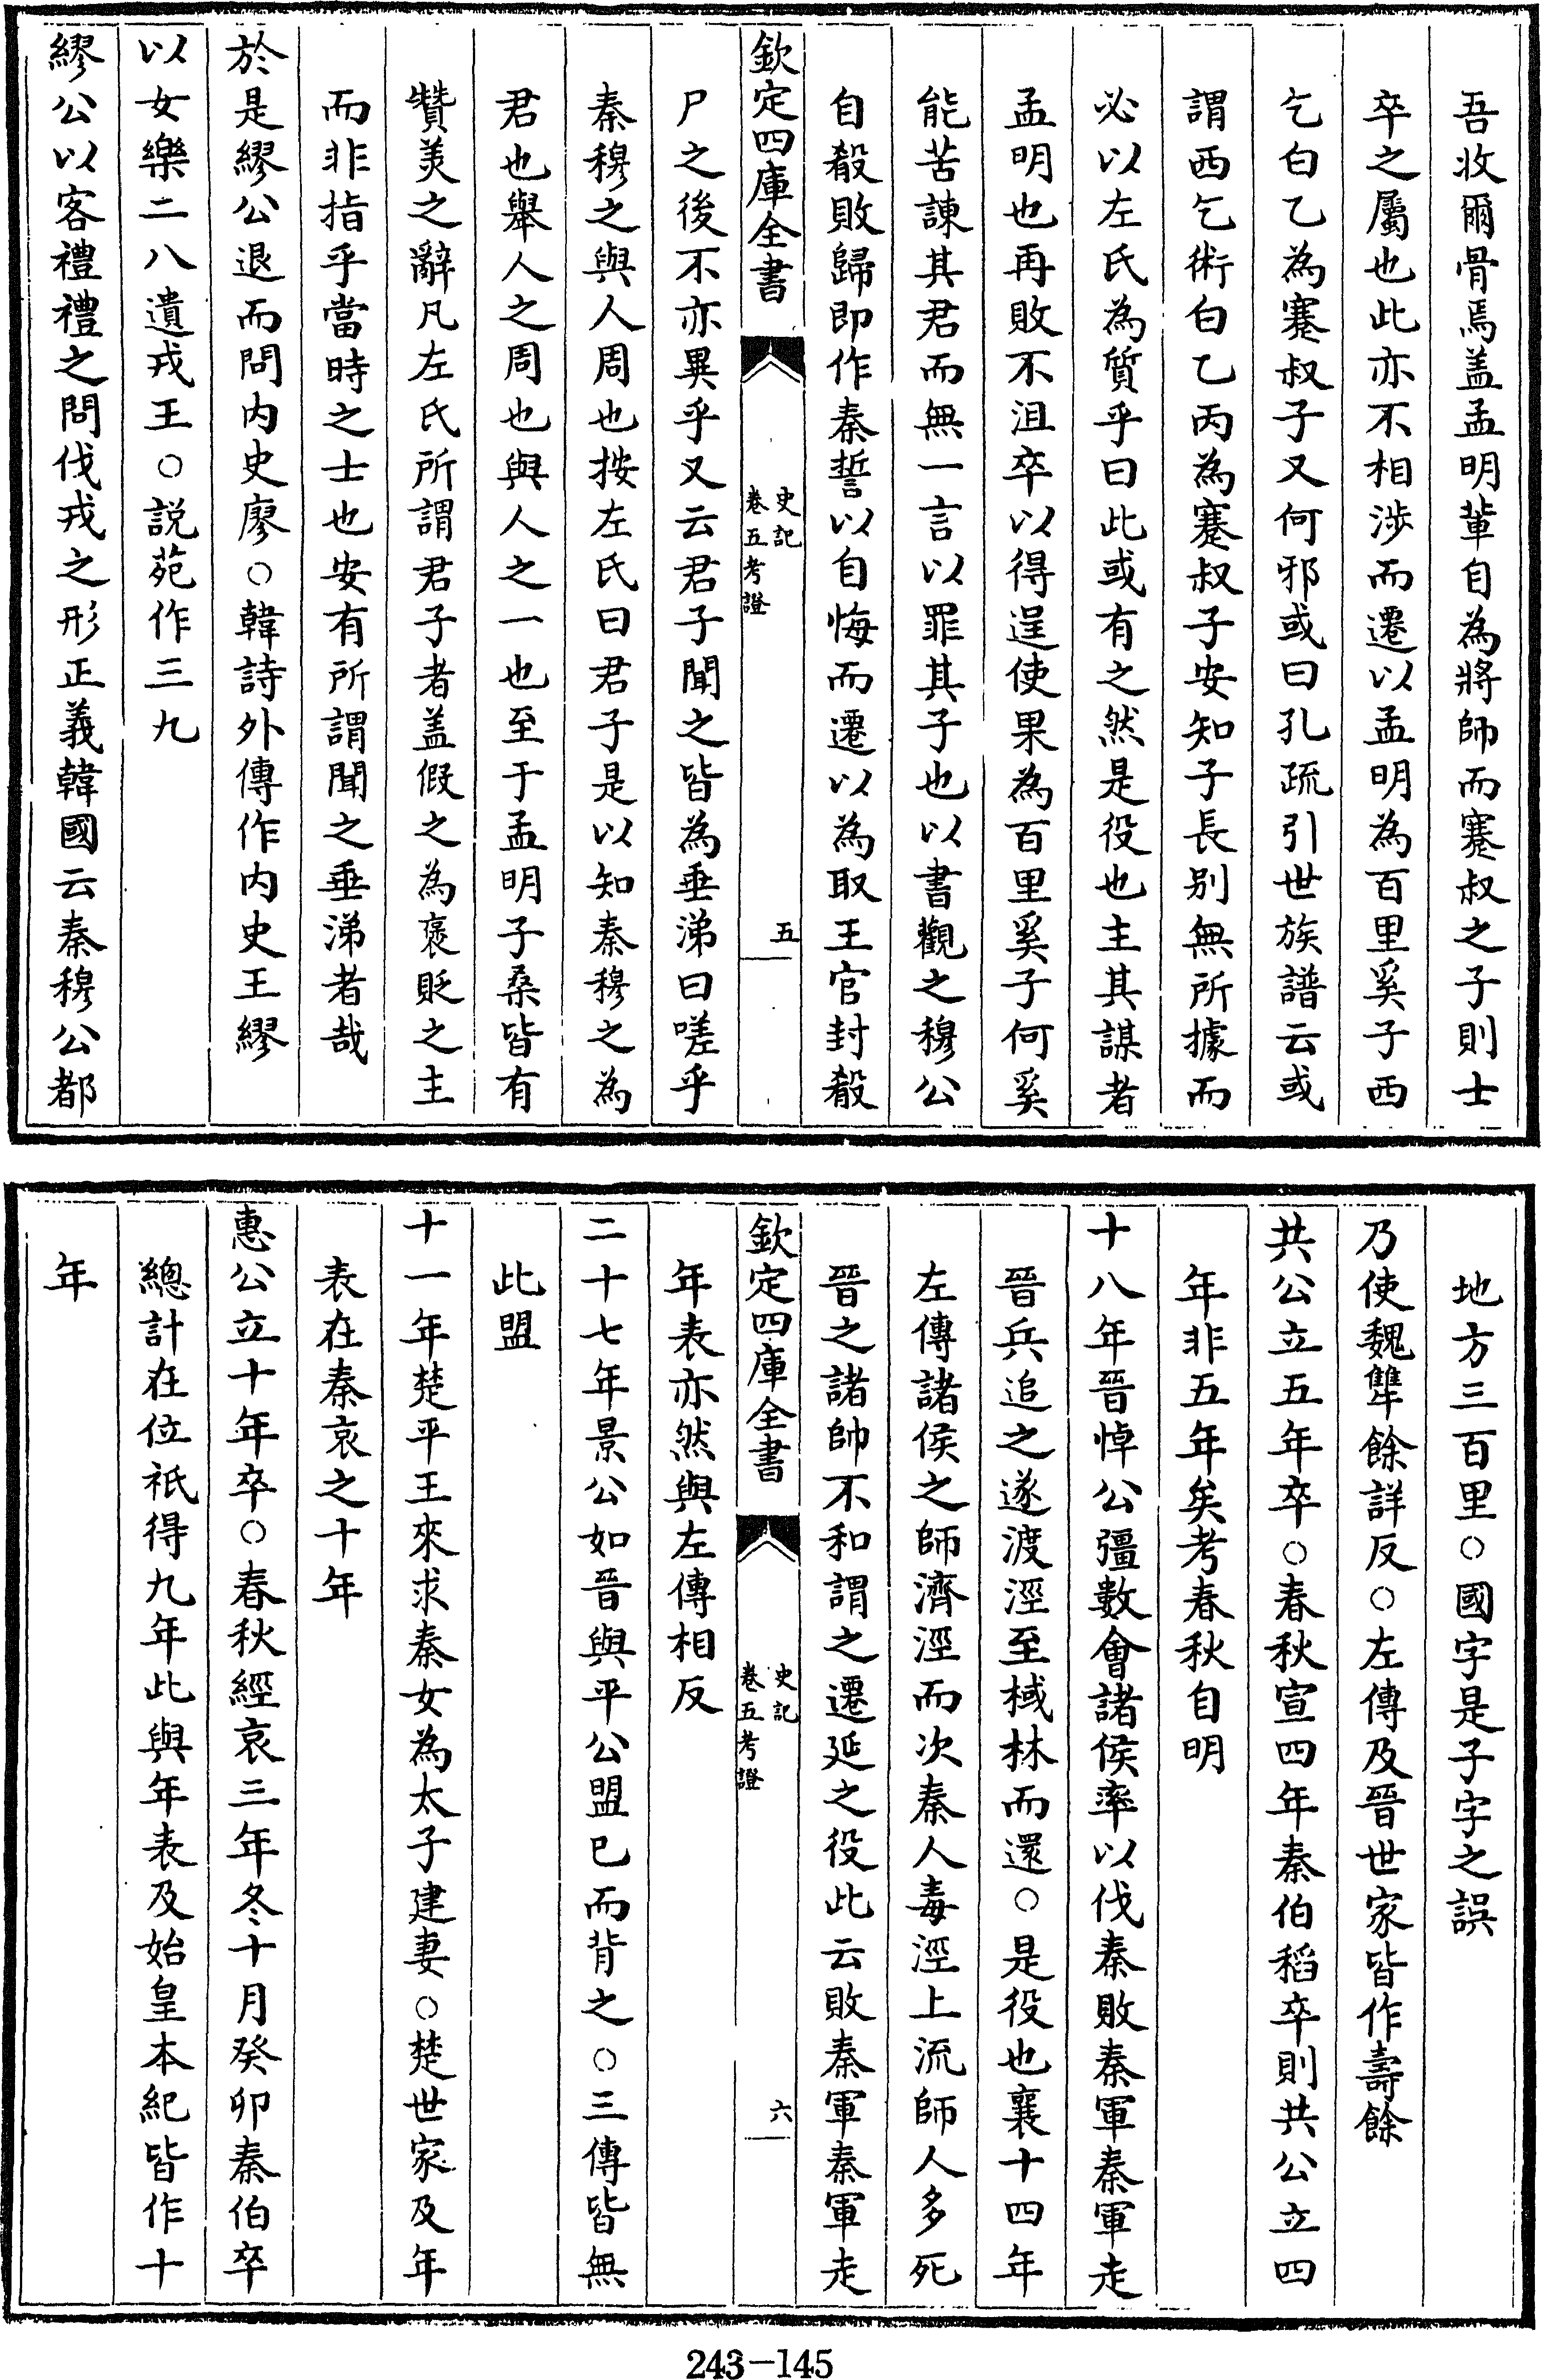 吾收爾骨焉盖孟明輩自為將師而蹇叔之子則士
卒之屬也此亦不相涉而遷以孟明為百里奚子西
乞白乙為蹇叔子又何邪或曰孔疏引世族譜云或
謂西乞術白乙丙為蹇叔子安知子長别無所據而
必以左氏為質乎曰此或有之然是役也主其謀者
孟明也再敗不沮卒以得逞使果為百里奚子何奚
能苦諫其君而無一言以罪其子也以書觀之穆公
自殽敗歸即作秦誓以自悔而遷以為取王官封殽
欽定四庫全書
史記
卷五考證
五
尸之後不亦異乎又云君子聞之皆為垂涕曰嗟乎
秦穆之與人周也按左氏曰君子是以知秦穆之為
君也舉人之周也與人之一也至于孟明子桑皆有
贊美之辭凡左氏所謂君子者盖假之為褒貶之主
而非指乎當時之士也安有所謂聞之垂涕者哉
於是繆公退而問内史廖○韓詩外傳作内史王繆
以女樂二八遺戎王○説苑作三九
繆公以客禮禮之問伐戎之形正義韓國云秦穆公都
地方三百里○國字是子字之誤
乃使魏讐餘詳反○左傳及晉世家皆作壽餘
共公立五年卒○春秋宣四年秦伯稻卒則共公立四
年非五年矣考春秋自明
十八年晉悼公彊數會諸侯率以伐秦敗秦軍秦軍走
晉兵追之遂渡涇至棫林而還○是役也襄十四年
左傳諸侯之師濟涇而次秦人毒涇上流師人多死
晉之諸帥不和謂之遷延之役此云敗秦軍秦軍走
欽定四庫全書
史記
卷五考證
六
年表亦然與左傳相反
二十七年景公如晉與平公盟已而背之○三傳皆無
此盟
十一年楚平王來求秦女為太子建妻○楚世家及年
表在秦哀之十年
惠公立十年卒○春秋經哀三年冬十月癸卯秦伯卒
總計在位祇得九年此與年表及始皇本紀皆作十
年
243-145